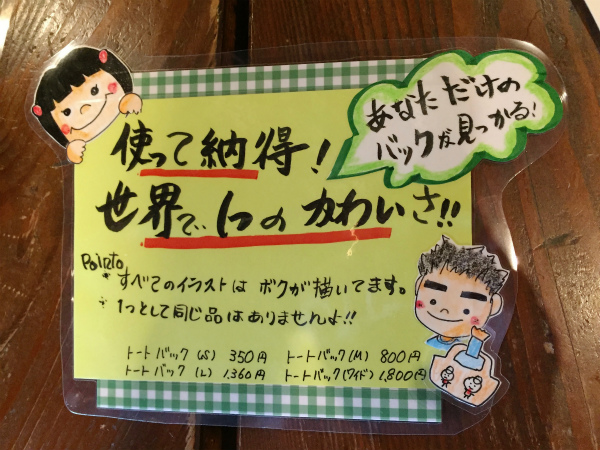 あなただけの
バックが見つかる!
使って納得!
世界で1つのかわいさ!!
Pointo
すべてのイラストは ボクが描いてます。
1つとして同じ品はありませんよ!!
トートバック(S) 350円 トートバック(M) 800円
トートバック(L) 1,360円 トートバック(ワイド) 1,800円